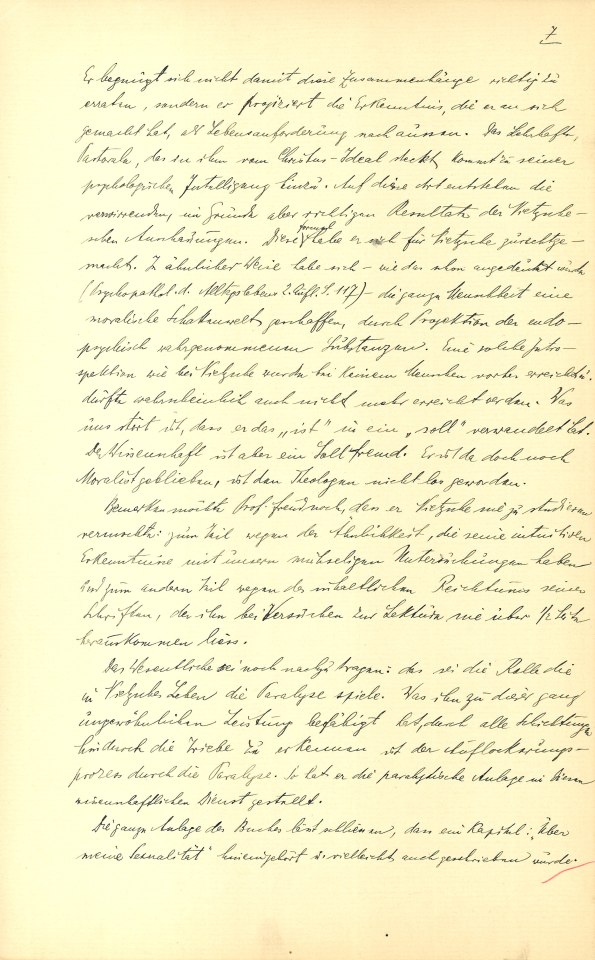 7
Er begnügt sich nicht damit diese Zusammenhänge richtig zu
erraten, sondern er projiziert die Erkenntnis, die er an sich
gemacht hat, als Lebensanforderung nach aussen. Das Lehrhafte,
Pastorale, das in ihm vom Christus-Ideal steckt, kommt zu seiner
psychologischen Intelligenz hinzu. Auf diese Art entstehen die
verwirrenden, im Grunde aber richtigen Resultate der Nietzsche-
schen Anschauungen. Diese Formel habe er sich für Nietzsche zurechtge-
macht. In ähnlicher Weise habe sich – wie das schon angedeutet wurde
(Psychopathol. d. Alltagslebens 2. Aufl. S. 117) – die ganze Menschheit eine
moralische Schattenwelt geschaffen, durch Projektion der endo-
psychisch wahrgenommenen Substanzen. Eine solche Intro-
spektion wie bei Nietzsche wurde bei keinem Menschen vorher erreicht u.
dürfte wahrscheinlich auch nicht mehr erreicht werden. Was
uns stört ist, dass er das „ist" in ein „soll" verwandelt hat.
Der Wissenschaft ist aber ein Soll fremd. Er ist da doch noch
Moralist geblieben, ist den Theologen nicht los geworden.
Bemerken möchte Prof. Freud noch, dass er Nietzsche nie zu studieren
vermochte: zum Teil wegen der Ähnlichkeit, die seine intuitiven
Erkenntnisse mit unsern mühseligen Untersuchungen haben
und zum andern Teil wegen des inhaltlichen Reichtums seiner
Schriften, der ihn bei Versuchen zur Lektüre nie über 1/2 Seite
herauskommen liess.
Das Wesentliche sei noch nachzutragen: das sei die Rolle die
in Nietzsches Leben die Paralyse spiele. Was ihn zu dieser ganz
ungewöhnlichen Leistung befähigt hat, durch alle Schichtungen
hindurch die Triebe zu erkennen ist der Auflockerungs-
prozess durch die Paralyse. So hat er die paralytische Anlage in diesen
wissenschaftlichen Dienst gestellt.
Die ganze Anlage des Buches lässt schliessen, dass ein Kapitel: „Über
meine Sexualität" hineingehört u. vielleicht auch geschrieben wurde.